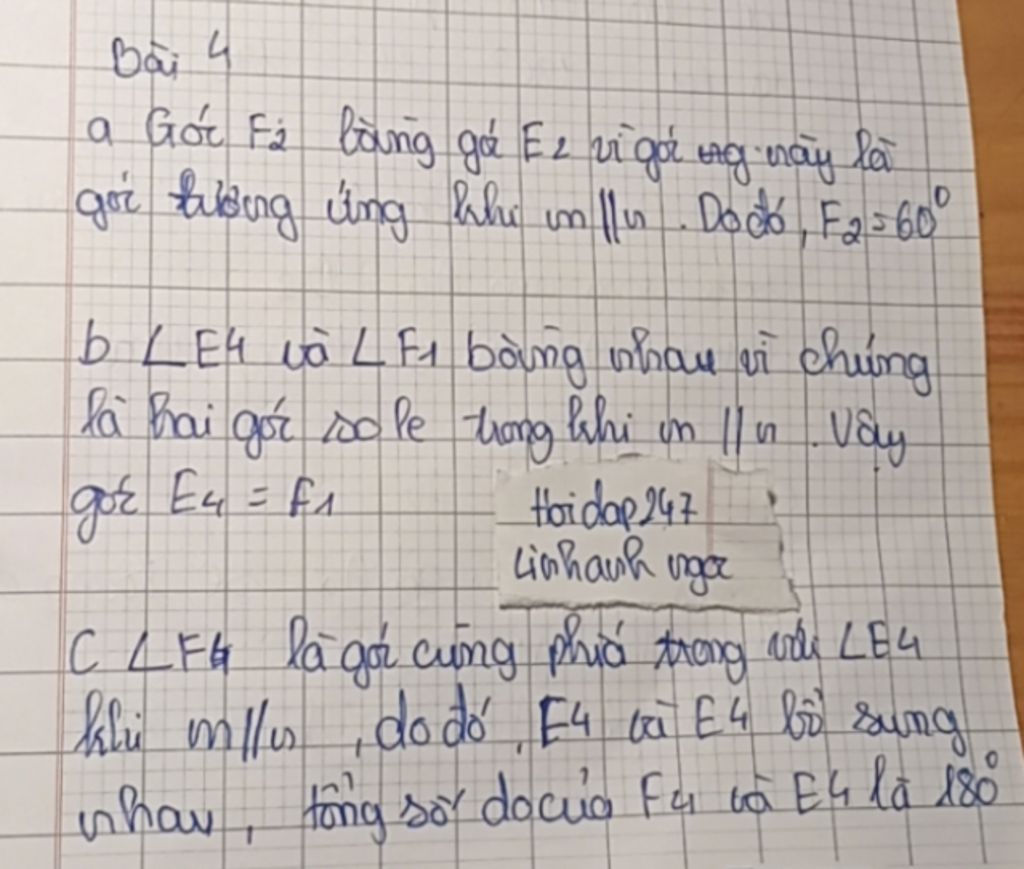 Bài 4
a Góc F2 bằng góc E2 vì góc này là
góc tương ứng khi m//n. Do đó, F2=60°
b ∠E4 và ∠F1 bằng nhau vì chúng
là hai góc so le trong khi m//n. Vậy
góc E4 = F1
Hoidap247
Linhanh ngoc
C ∠F4 là góc cùng phía trong với ∠E4
khi m//n, do đó, E4 và E4 bổ sung
nhau, tổng số đo của F4 và E4 là 180°